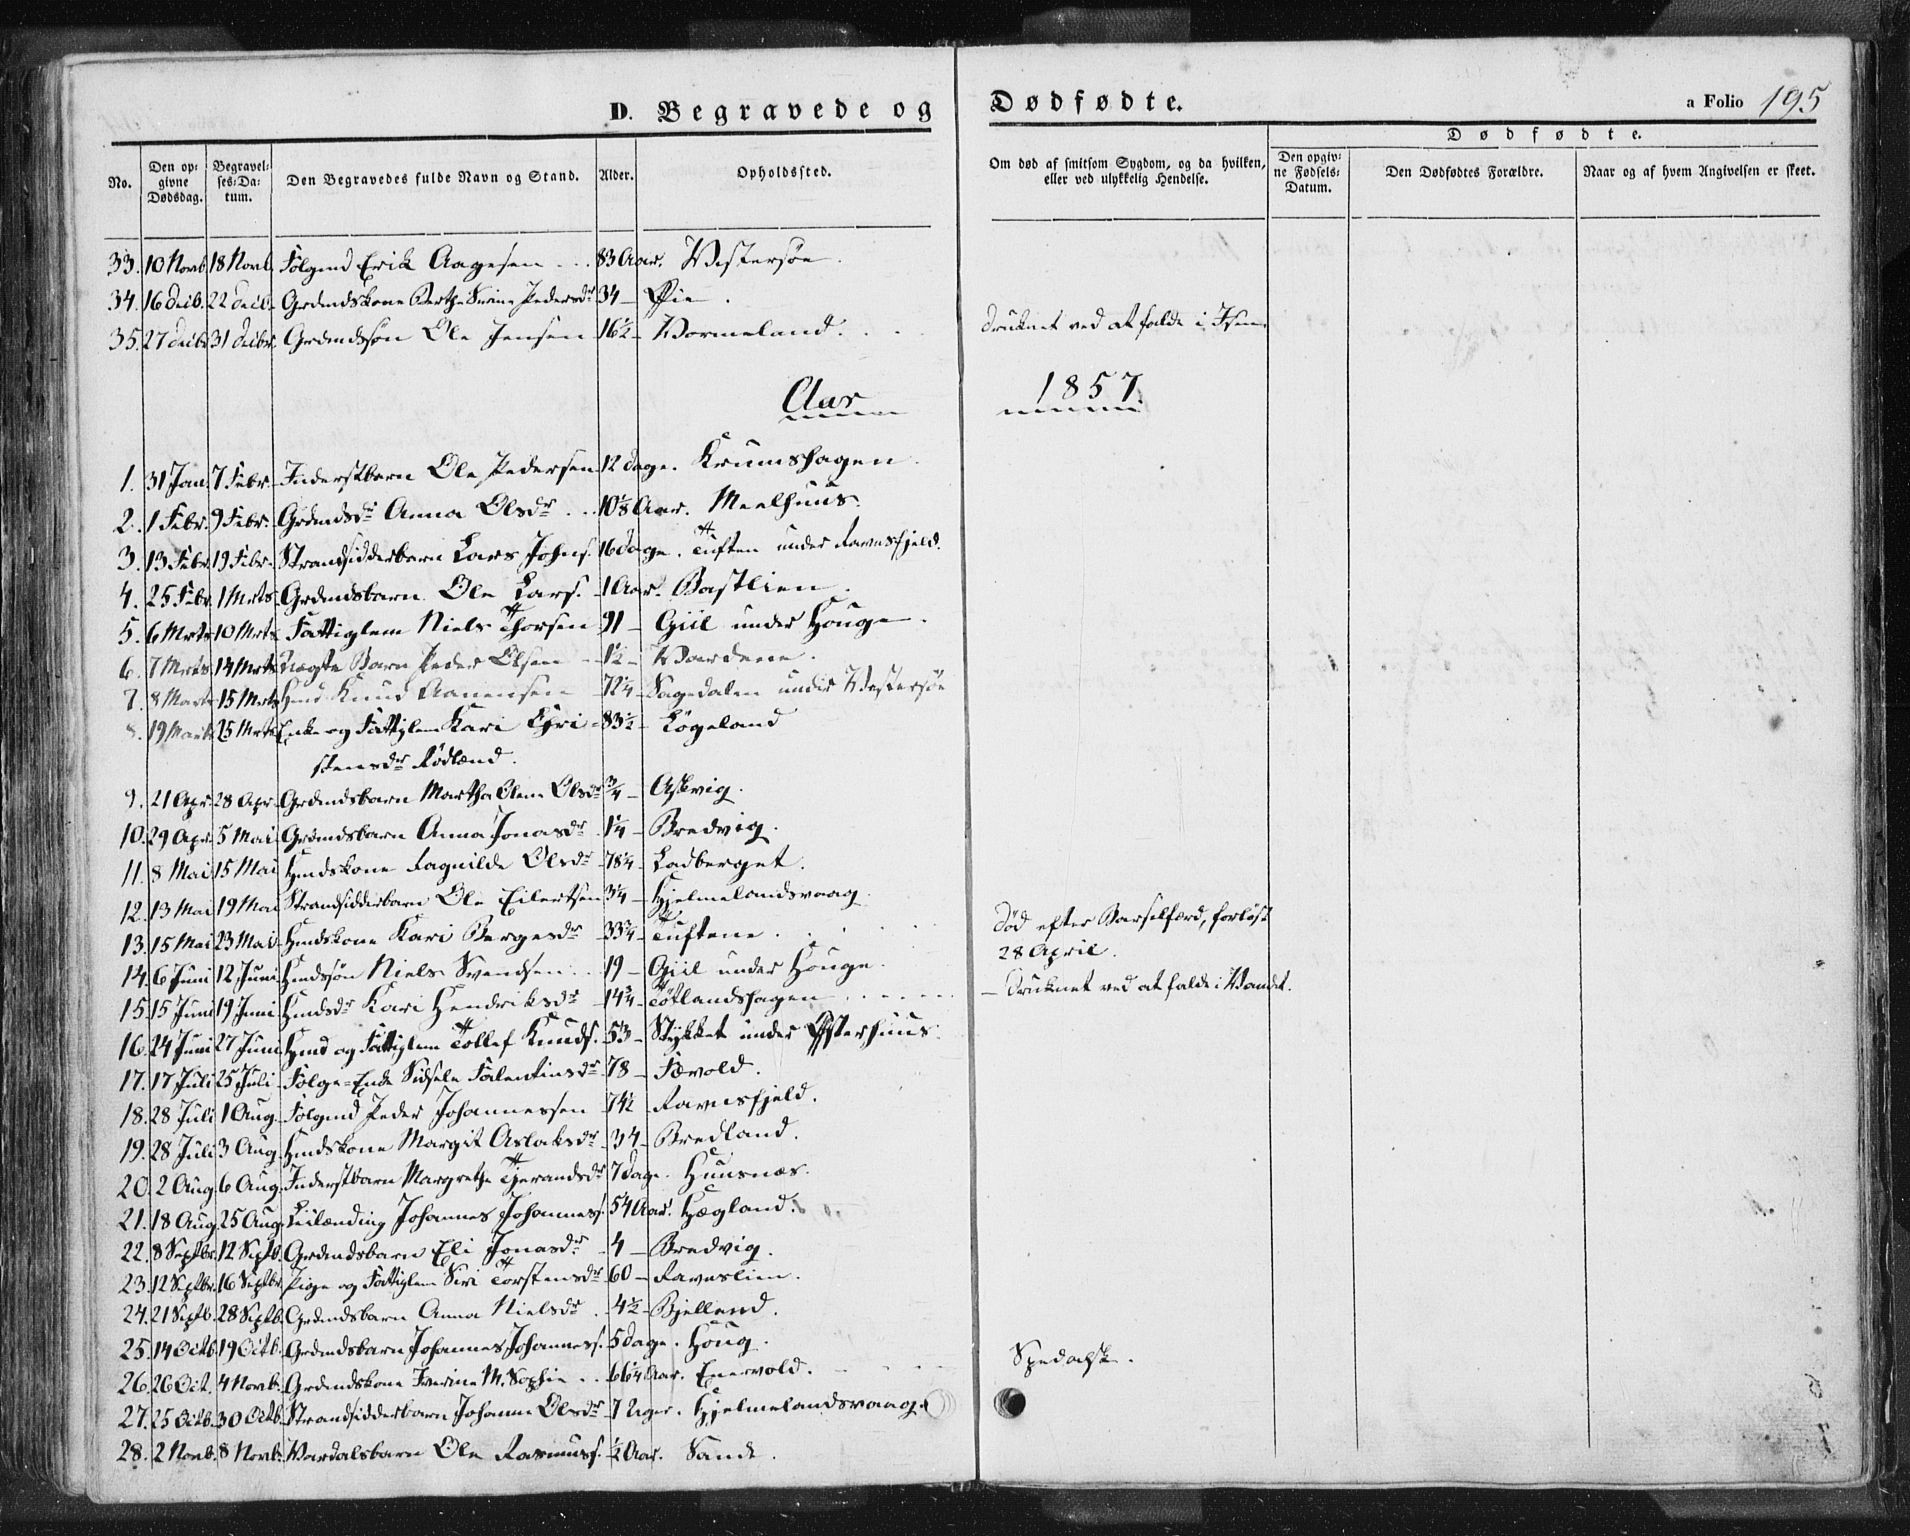 D. Begravede og Dødfødte. a Folio 195
Dødfødte.
No. Den opgivne Dødsdag. Begravelses-Datum. Den Begravedes fulde Navn og Stand. Alder. Opholdssted. Om død af smitsom Sygdom, og da hvilken, eller ved ulykkelig Hendelse. Den opgivne Fødsels-Datum. Den Dødfødtes Forældre. Naar og af hvem Angivelsen er skeet.
33. 10 Novb. 18 Novb. Følgmd Erik Aagesen 83 Aar. Vestersøe.
34. 16 Decb. 22 Decb. Grdmdskone Berthe Serine Pedersdr 34 – Øie.
35. 27 Decb. 31 Decbr. Grdmdssøn Ole Jensen 16½ – Vormeland. Druknet ved at falde i Isen.
Aar 1857.
1. 31 Jan. 7 Febr. Inderstbarn Ole Pedersen 12 Dage. Krumshagen.
2. 1 Febr. 9 Febr. Grdmdsdr Anna Olsdr 10⅓ Aar. Meelhuus.
3. 13 Febr. 19 Febr. Strandsidderbarn Lars Johns. 16 Dage. Tuften under Ravnsfjeld.
4. 25 Febr. 1 Mrts. Grdmdsbarn Ole Lars. 1 Aar. Bastlien.
5. 6 Mrts. 10 Mrts. Fattiglem Niels Thorsen 91 – Giil under Houge.
6. 7 Mrts. 14 Mrts. Uægte Barn Peder Olsen 1½ – Vardene.
7. 8 Marts 15 Mrts. Hmd Knud Aanensen 72¼ – Sagedalen under Vestersøe
8. 19 Marts 25 Mrts. Enke og Fattiglem Kari Chri- 83½ – Løgeland
stensdr Rødland.
9. 21 Apr. 28 Apr. Grdmdsbarn Martha Olene Olsdr ¾ – Askvig.
10. 29 Apr. 5 Mai. Grdmdsbarn Anna Jonasdr 1¼ – Bredvig.
11. 8 Mai 15 Mai Hmdskone Ragnilde Olsdr 78¼ – Ladberget.
12. 13 Mai 19 Mai Strandsidderbarn Ole Eilertsen 3¼ – Hjelmelandsvaag.
13. 15 Mai 23 Mai Hmdskone Kari Bergesdr 33¾ – Tuftene. Død efter Barselfærd, forløst
28 April.
14. 6 Juni 12 Juni Hmdssøn Niels Svendsen 19 – Giil under Houge.
15. 15 Juni 19 Juni Hmdsdr Kari Hendriksdr 14¾ – Tøtlandshagen – Druknet ved at falde i Vandet.
16. 24 Juni 27 Juni Hmd og Fattiglem Tollef Knuds. 53 – Stykket under Østerhuus.
17. 17 Juli 25 Juli Følge-Enke Sidsele Falentinsdr 78 – Fævold.
18. 28 Juli 1 Aug. Følgmd Peder Johannessen 74½ – Ravnsfjeld.
19. 28 Juli 3 Aug. Hmdskone Margit Aslaksdr 34 – Bredland.
20. 2 Aug. 6 Aug. Inderstbarn Margrethe Tjerandsdr 7 Dage. Huusnæs.
21. 18 Aug. 25 Aug. Leilænding Johannes Johanness. 54 Aar. Hægland.
22. 8 Septbr. 12 Septb. Grdmdsbarn Eli Jonasdr 4 – Bredvig.
23. 12 Septbr. 16 Septbr. Pige og Fattiglem Siri Torstensdr 60 – Ravnslien.
24. 21 Septb. 28 Septb. Grdmdsbarn Anna Nielsdr 4½ – Bjelland.
25. 14 Octb. 19 Octb. Grdmdsbarn Johannes Johanness. 5 Dage. Houg.
26. 26 Oct. 4 Novb. Grdmdskone Iverine M. Sophie 66¼ Aar. Enervold. Spedalsk.
27. 25 Octb. 30 Octb. Strandsidderbarn Johanne Olsdr 7 Uger. Hjelmelandsvaag.
28. 2 Novb. 8 Novb. Vardalsbarn Ole Rasmuss. ½ Aar. Sande.